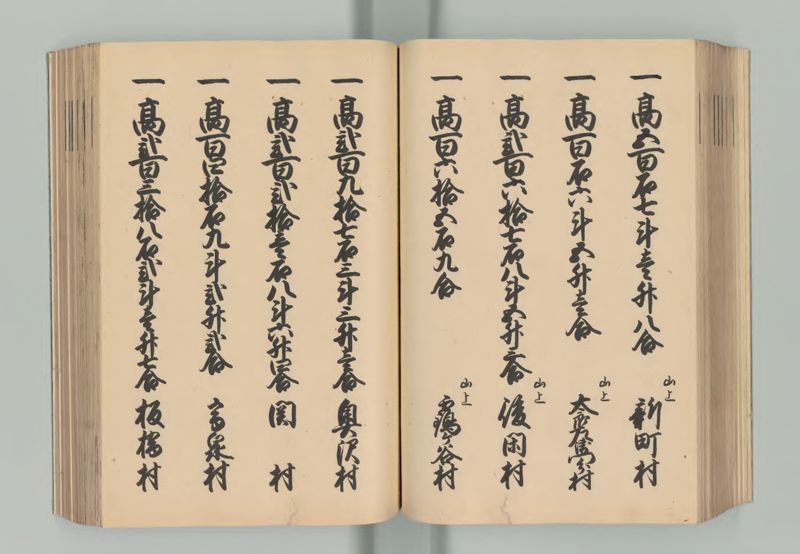 一 高五百石七斗壱升八合 山上 新町村
一 高百石六斗五升壱合 山上 村
一 高弐百六拾七石八斗五升六合 山上 後閑村
一 高百六拾五石九合 山上 鶴ヶ谷村
一 高弐百九拾七石三斗三升壱合 奥沢村
一 高弐百弐拾壱石八斗六升四合 関村
一 高百四拾石九斗弐升弐合 高泉村
一 高弐百三拾八石弐斗壱升七合 板橋村